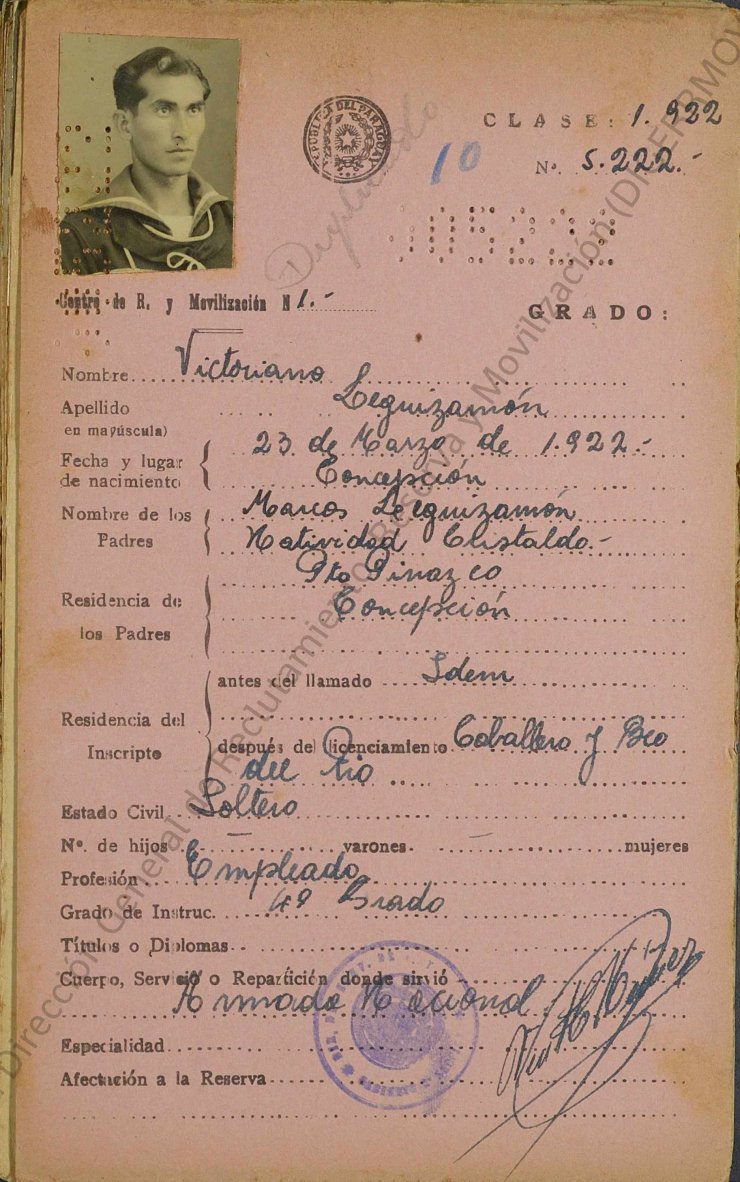 REPUBLICA DEL PARAGUAY
CLASE: 1.922
10
Nº 5.222.-
Duplicado
05222
Centro de R. y Movilización N 1.-
GRADO:
Nombre Victoriano
Apellido Leguizamón
en mayúscula)
Fecha y lugar 23 de Marzo de 1.922.-
de nacimiento Concepción
Nombre de los Marcos Leguizamón
Padres Natividad Cristaldo.-
Pto Pinazco
Residencia de Concepción
los Padres
antes del llamado Idem
Residencia del
Inscripto
después del licenciamiento Caballero y Bco
del Rio
Estado Civil Soltero
Nº. de hijos — varones — mujeres
Profesión Empleado
Grado de Instruc. 4º Grado
Títulos o Diplomas
Cuerpo, Servicio o Repartición donde sirvió
Armada Nacional
Especialidad
Afectación a la Reserva
Dirección General de Reclutamiento, Reserva y Movilización